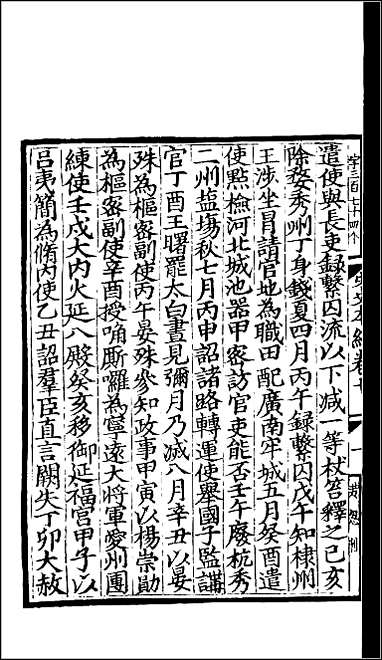 遣使與長吏録繫囚流以下减一等杖笞釋之己亥
除婺秀州丁身錢夏四月丙午録繫囚戊午知棣州
王涉坐冒請官地為職田配廣南牢城五月癸酉遣
使㸃檢河北城池器甲密訪官吏能否壬午廢杭秀
二州塩塲秋七月丙申詔諸路轉運使舉國子監講
官丁酉王曙罷太白晝見彌月乃滅八月辛丑以晏
殊為樞密副使丙午晏殊參知政事甲寅以楊崇勲
為樞密副使辛酉授唃厮囉為寧遠大將軍愛州團
練使壬戌大内火延八殿癸亥移御延福宮甲子以
吕夷簡為脩内使乙丑詔羣臣直言闕失丁卯大赦